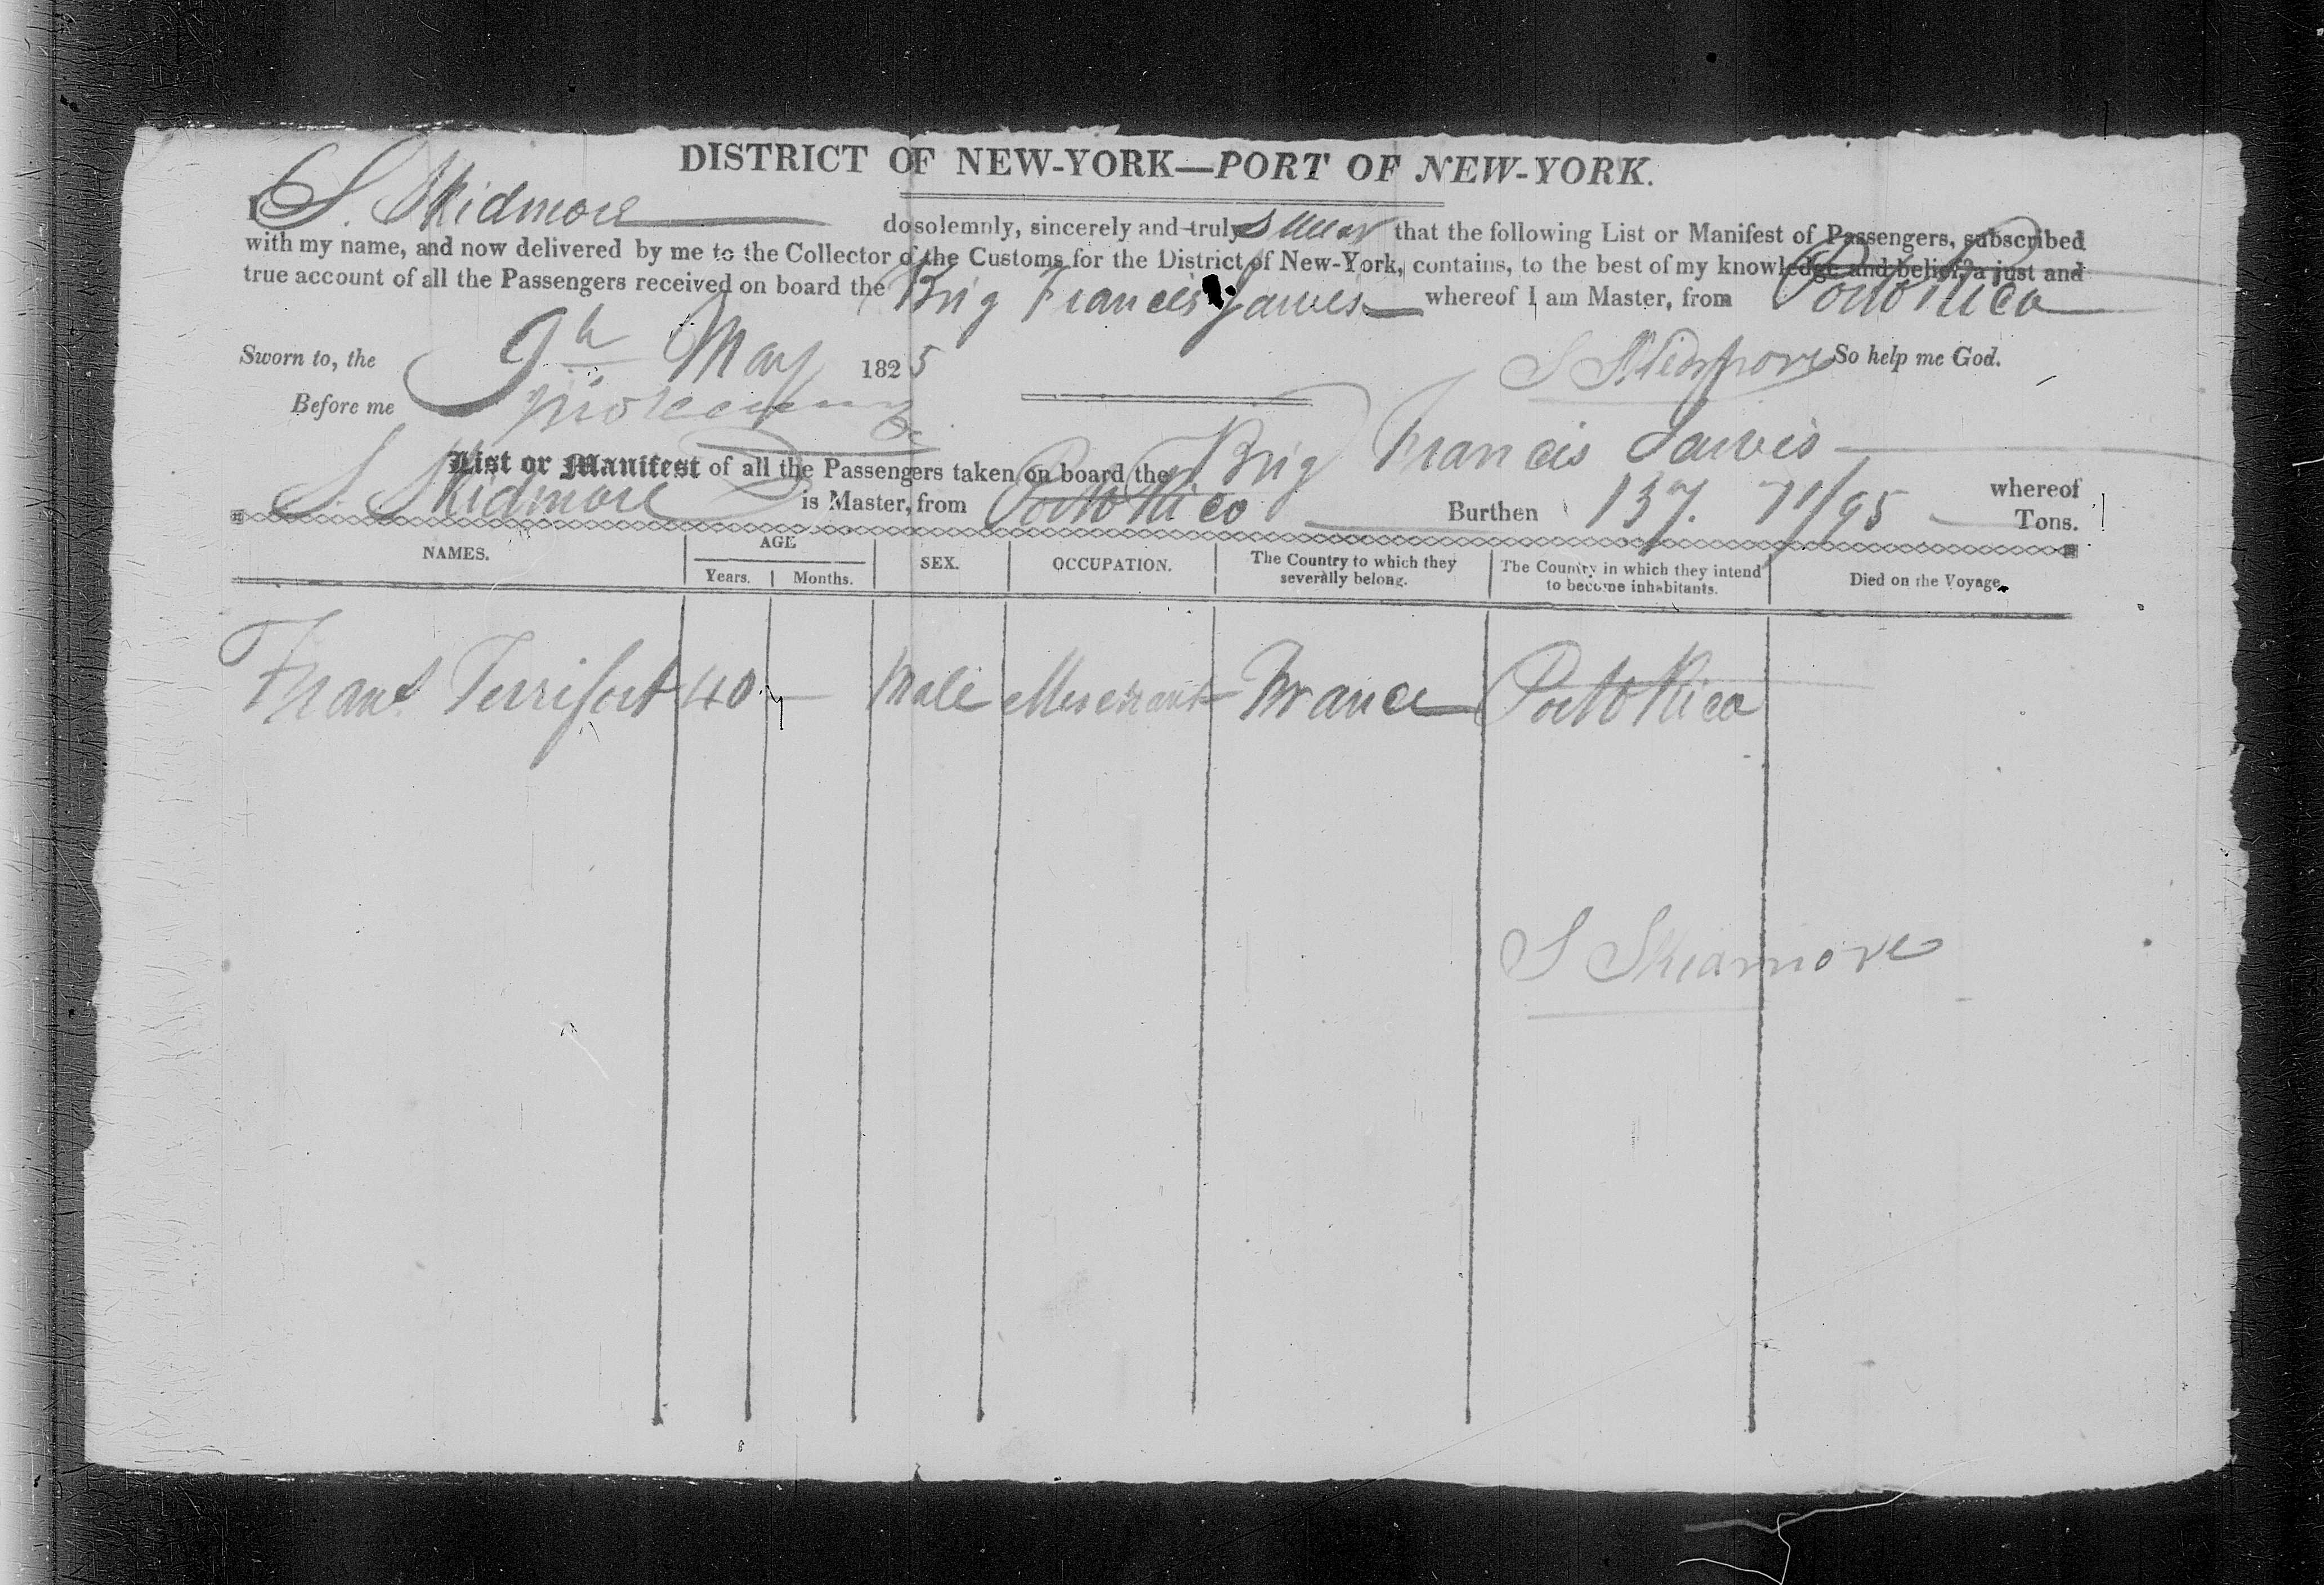 DISTRICT OF NEW-YORK—PORT OF NEW-YORK.
I S. Skidmore do solemnly, sincerely and truly Swear that the following List or Manifest of Passengers, subscribed
with my name, and now delivered by me to the Collector of the Customs for the District of New-York, contains, to the best of my knowledge and belief, a just and
true account of all the Passengers received on board the Brig Francis Jarvis whereof I am Master, from Porto Rico
Sworn to, the 9th May 1825 S Skidmore So help me God.
Before me
List or Manifest of all the Passengers taken on board the Brig Francis Jarvis whereof
S. Skidmore is Master, from Porto Rico Burthen 137. 71/95 Tons.
NAMES. AGE Years. Months. SEX. OCCUPATION. The Country to which they severally belong. The Country in which they intend to become inhabitants. Died on the Voyage.
Frans. Terrifort 40 — Male Merchant France Porto Rico
S Skidmore